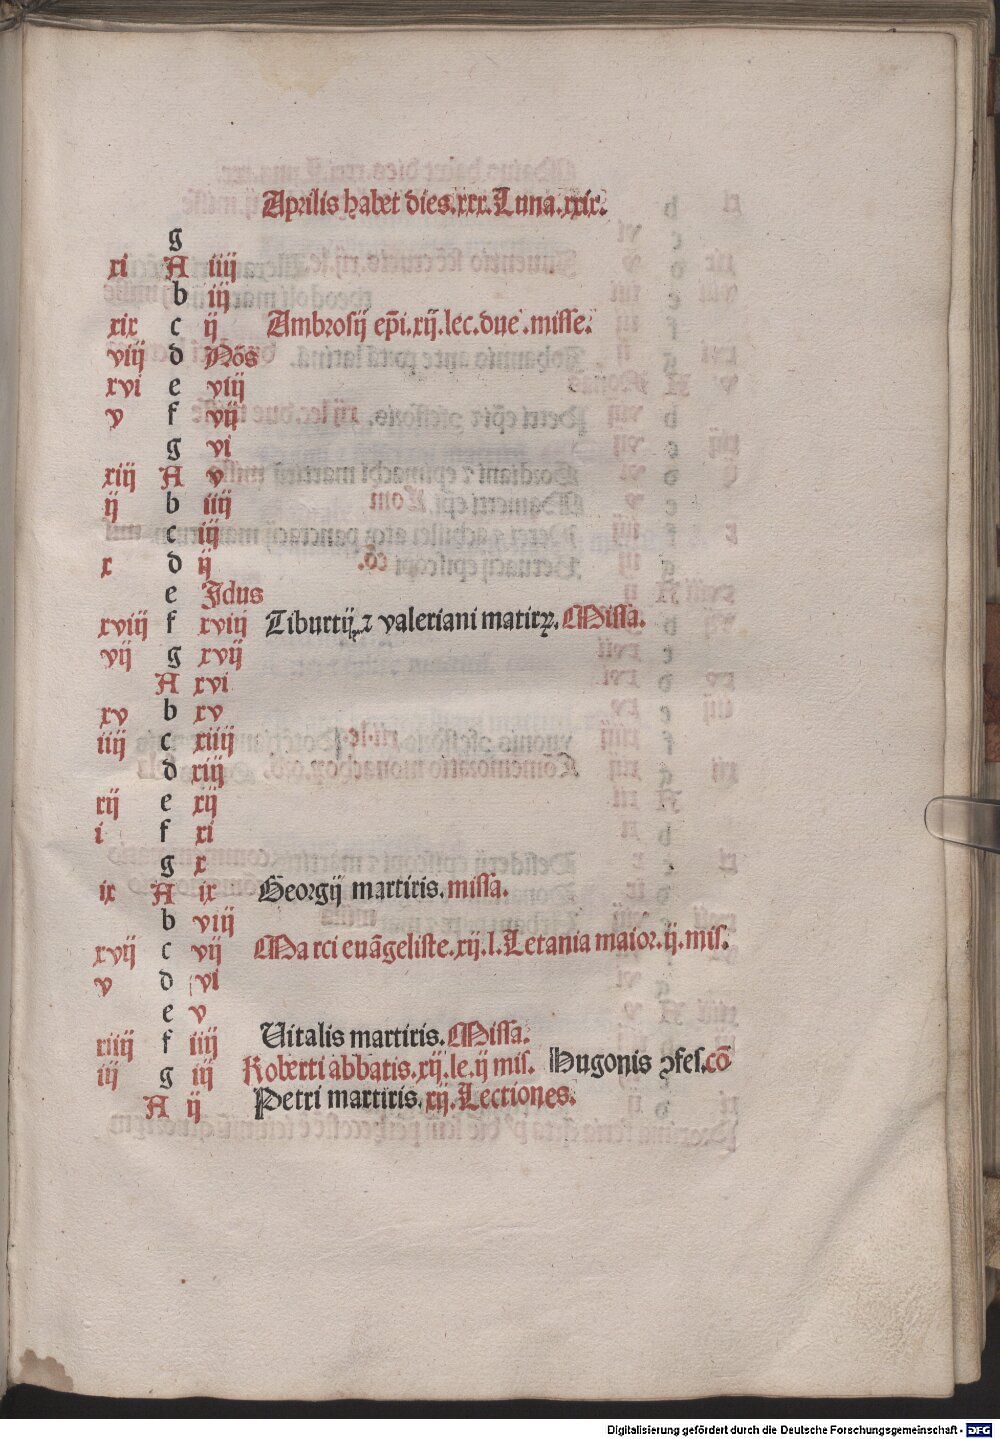 Aprilis habet dies.xxx.Luna.xxix.
g
xi A iiij
b iij
xix c ij Ambrosij ep̄i.xij.lec.due.misse.
viij d Nōs
xvi e viij
v f vij
g vi
xiij A v
ij b iiij
c iij
x d ij
e Jdus
xviij f xviij Tiburtij ⁊ valeriani matirꝝ.Missa.
vij g xvij
A xvi
xv b xv
iiij c xiiij
d xiij
xij e xij
i f xi
g x
ix A ix Georgij martiris.missa.
b viij
xvij c vij Marci euāgeliste.xij.l.Letania maior.ij.mis.
v d vi
e v
xiiij f iiij Uitalis martiris.Missa.
iij g iij Roberti abbatis.xij.le.ij mis. Hugonis ↄfes.cō
A ij Petri martiris.xij.Lectiones.
Digitalisierung gefördert durch die Deutsche Forschungsgemeinschaft - DFG